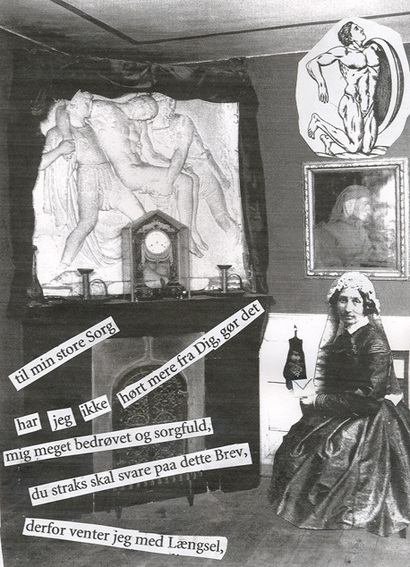 til min store Sorg
har jeg ikke hørt mere fra Dig, gør det
mig meget bedrøvet og sorgfuld,
du straks skal svare paa dette Brev,
derfor venter jeg med Længsel,